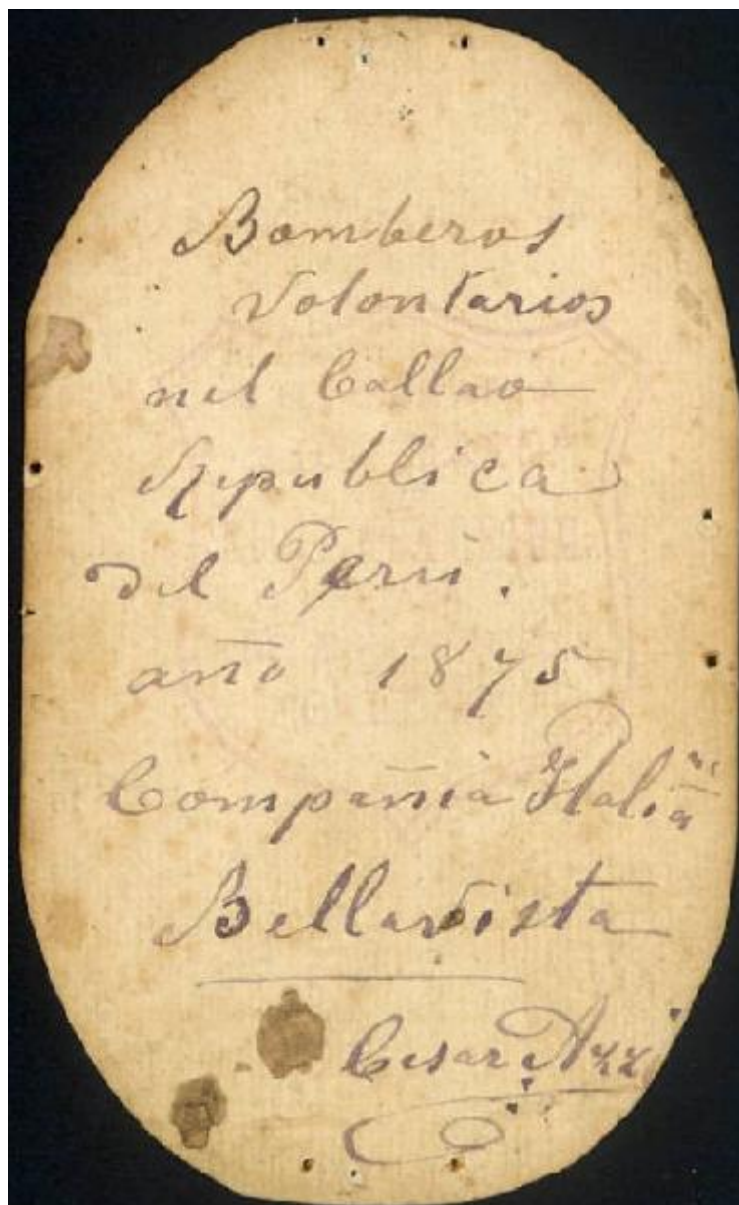 Bomberos
Volontarios
nel Callao
Republica
del Perú.
año 1875
Compañia Italiana
Bellavista
Cesar Azzi